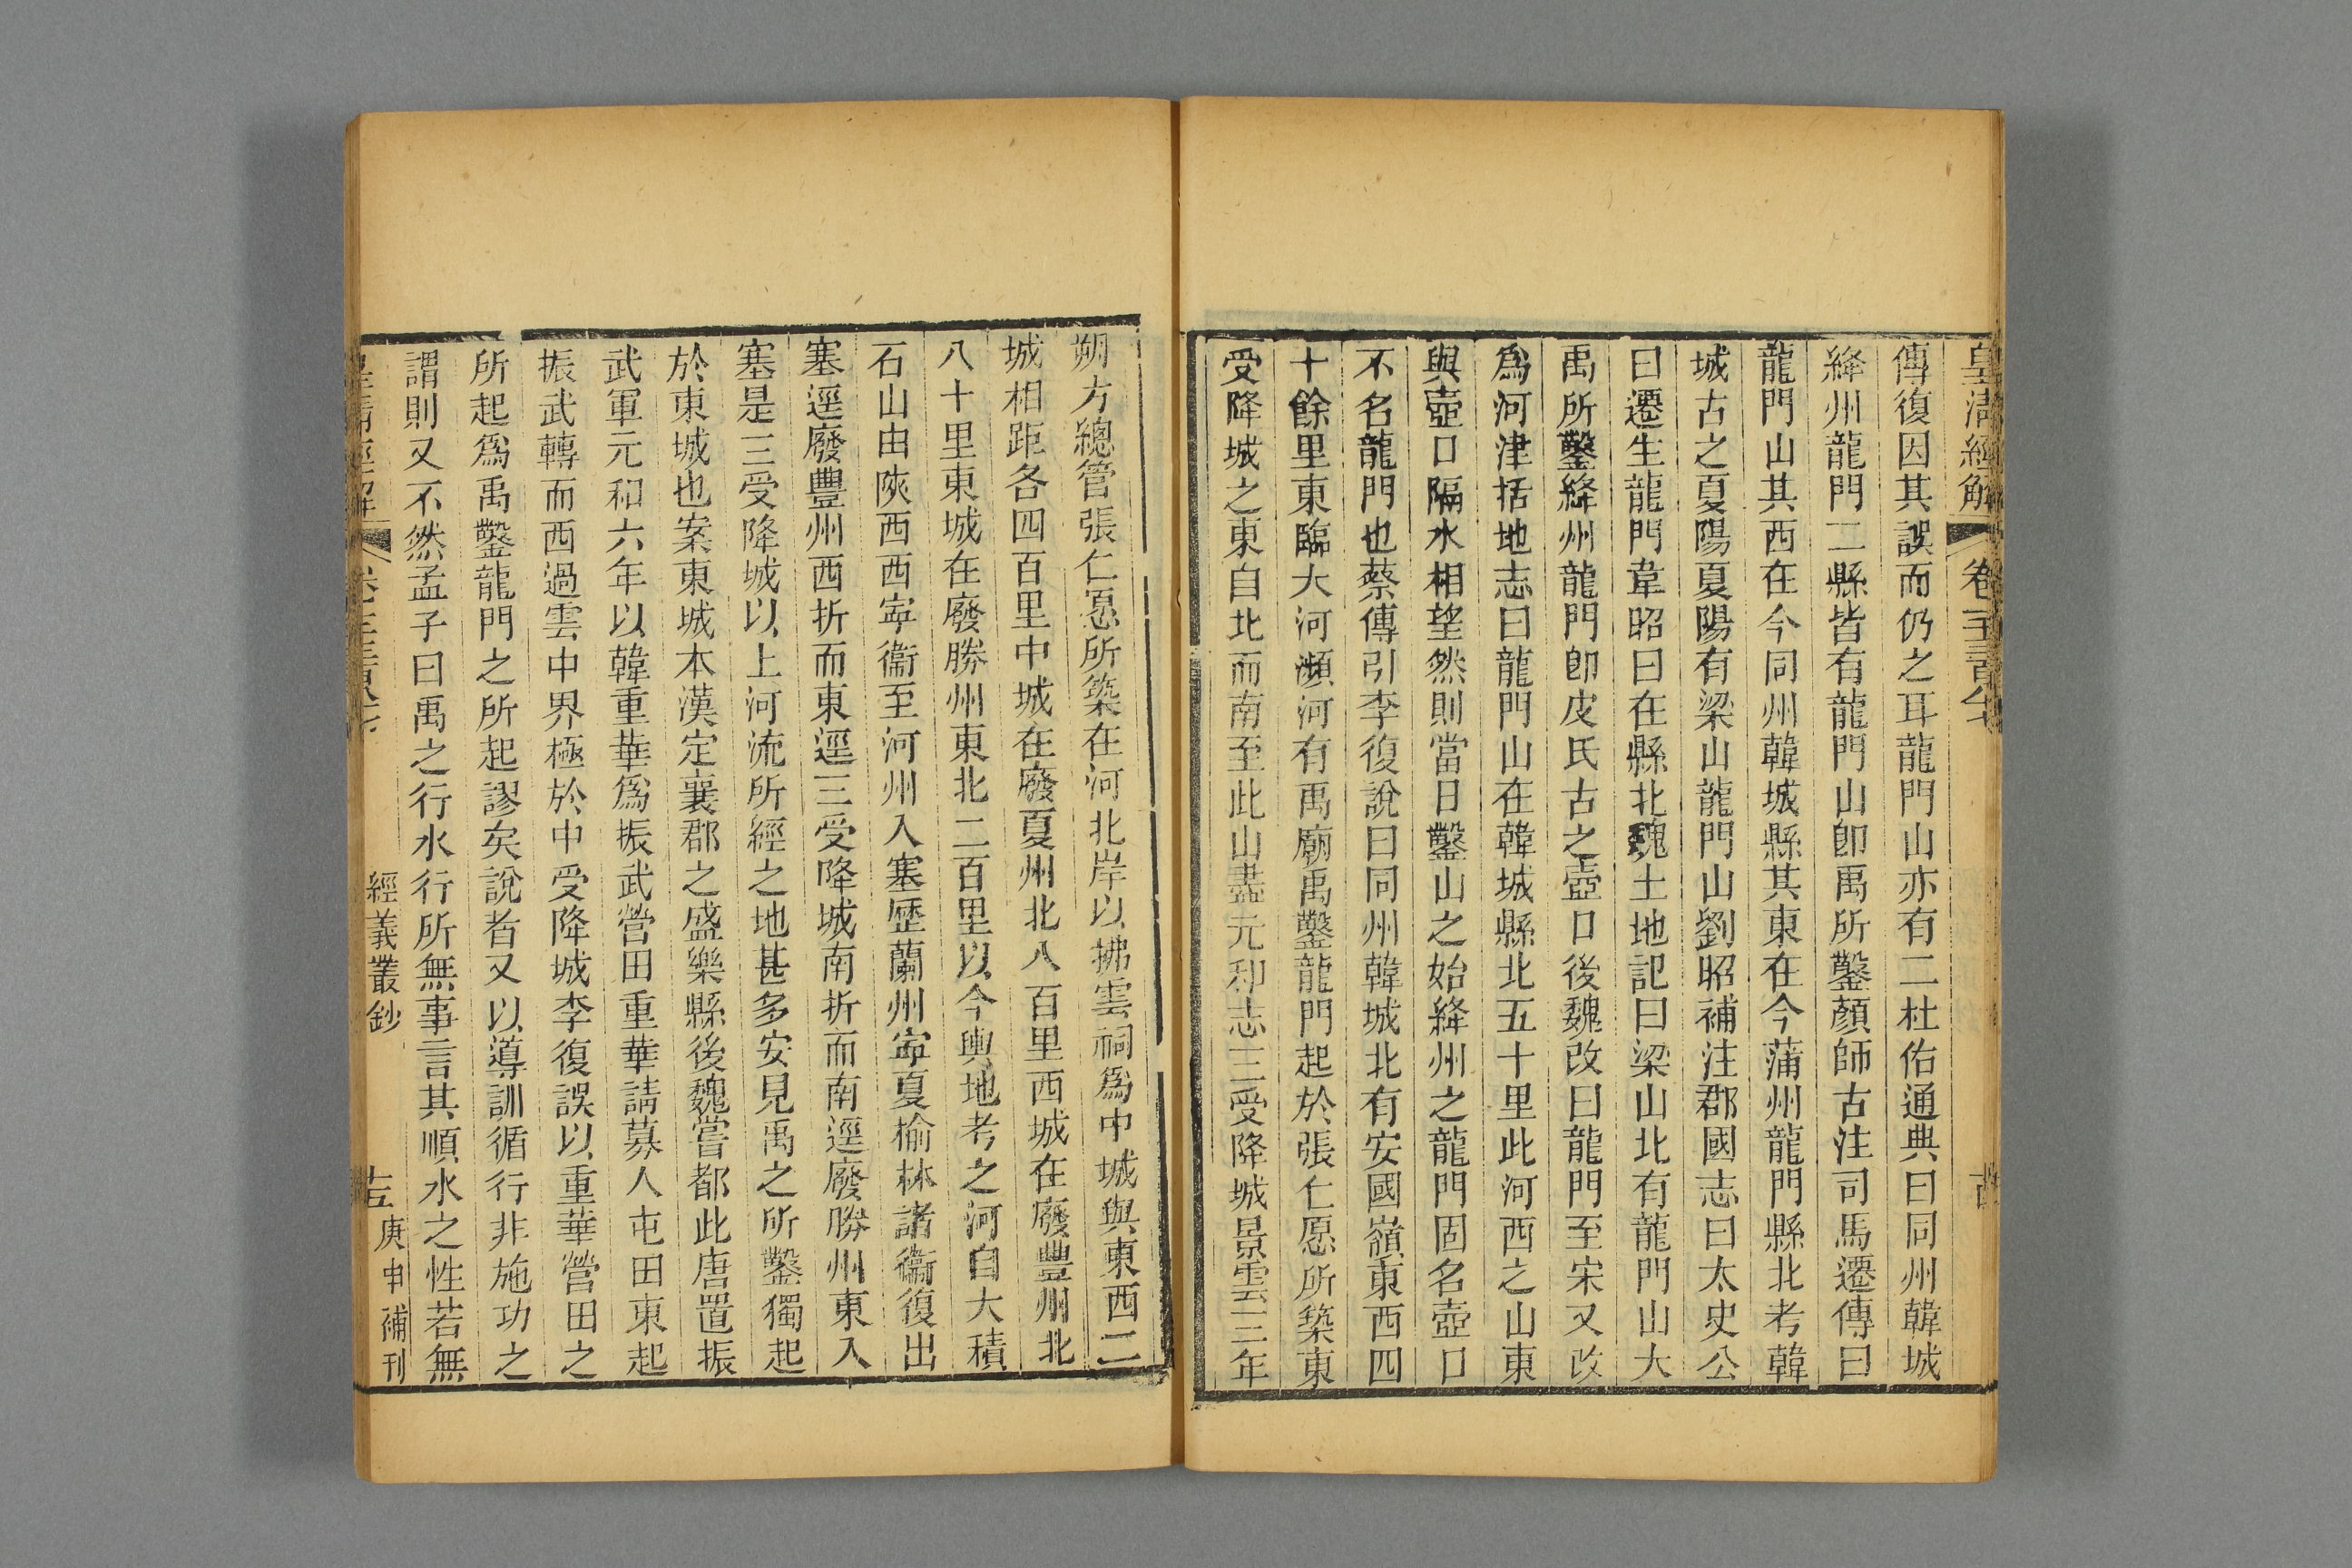 皇清經解
卷一千三百八十七
傳復因其誤而仍之耳龍門山亦有二杜佑通典曰同州韓城
絳州龍門二縣皆有龍門山卽禹所鑿顏師古注司馬遷傳曰
龍門山其西在今同州韓城縣其東在今蒲州龍門縣北考韓
城古之夏陽夏陽有梁山龍門山劉昭補注郡國志曰太史公
曰遷生龍門韋昭曰在縣北魏土地記曰梁山北有龍門山大
禹所鑿絳州龍門卽皮氏古之壺口後魏改曰龍門至宋又改
爲河津括地志曰龍門山在韓城縣北五十里此河西之山東
與壺口隔水相望然則當日鑿山之始絳州之龍門固名壺口
不名龍門也蔡傳引李復說曰同州韓城北有安國嶺東西四
十餘里東臨大河瀕河有禹廟禹鑿龍門起於張仁愿所築東
受降城之東自北而南至此山盡元和志三受降城景雲三年
朔方總管張仁愿所築在河北岸以拂雲祠爲中城與東西二
城相距各四百里中城在廢夏州北八百里西城在廢豐州北
八十里東城在廢勝州東北二百里以今輿地考之河自大積
石山由陝西西寧衞至河州入塞歷蘭州寧夏榆林諸衞復出
塞逕廢豐州西折而東逕三受降城南折而南逕廢勝州東入
塞是三受降城以上河流所經之地甚多安見禹之所鑿獨起
於東城也案東城本漢定襄郡之盛樂縣後魏嘗都此唐置振
武軍元和六年以韓重華爲振武營田重華請募人屯田東起
振武轉而西過雲中界極於中受降城李復誤以重華營田之
所起爲禹鑿龍門之所起謬矣說者又以導訓循行非施功之
謂則又不然孟子曰禹之行水行所無事言其順水之性若無
皇清經解
經義叢鈔
庚申補刊